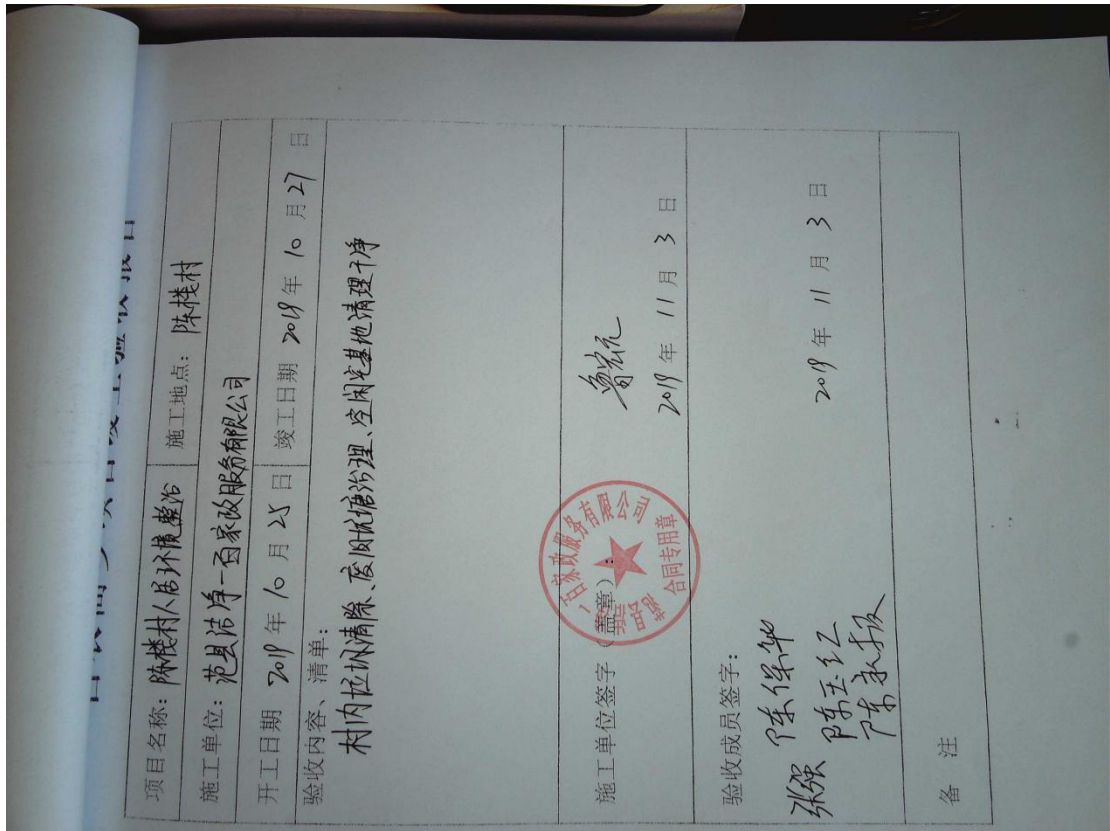 项目名称：陈楼村人居环境整治 施工地点：陈楼村
施工单位：范县洁净一百家政服务有限公司
开工日期 2019年10月25日 竣工日期 2019年10月27日
验收内容、清单：
村内垃圾清除、废旧坑塘治理、空闲宅基地清理干净
施工单位签字（盖章）：
2019年11月3日
一百家政服务有限公司
合同专用章
验收成员签字：
陈保华
张强 陈玉红
陈永振
2019年11月3日
备注